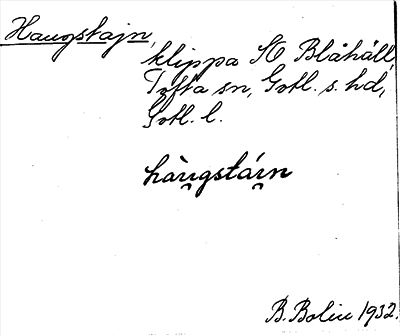 Haugstajn,
klippa SO Blåhäll,
Tofta sn, Gotl. s. hd,
Gotl. l.
hàu̯gstái̯n
B. Bolin 1932.